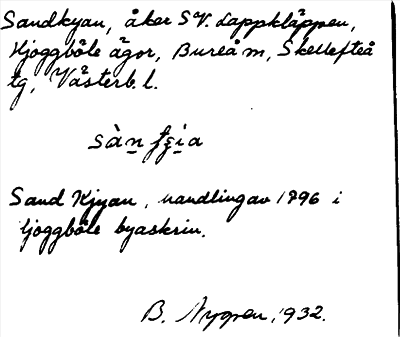 Sandkyan, åker SV. Lappkläppen,
Hjoggböle ägor, Bureå m, Skellefteå
tg, Västerb. l.
Sand Kjyan, handling av 1896 i
ljoggböle byaskrin.
B. Nygren, 1932.